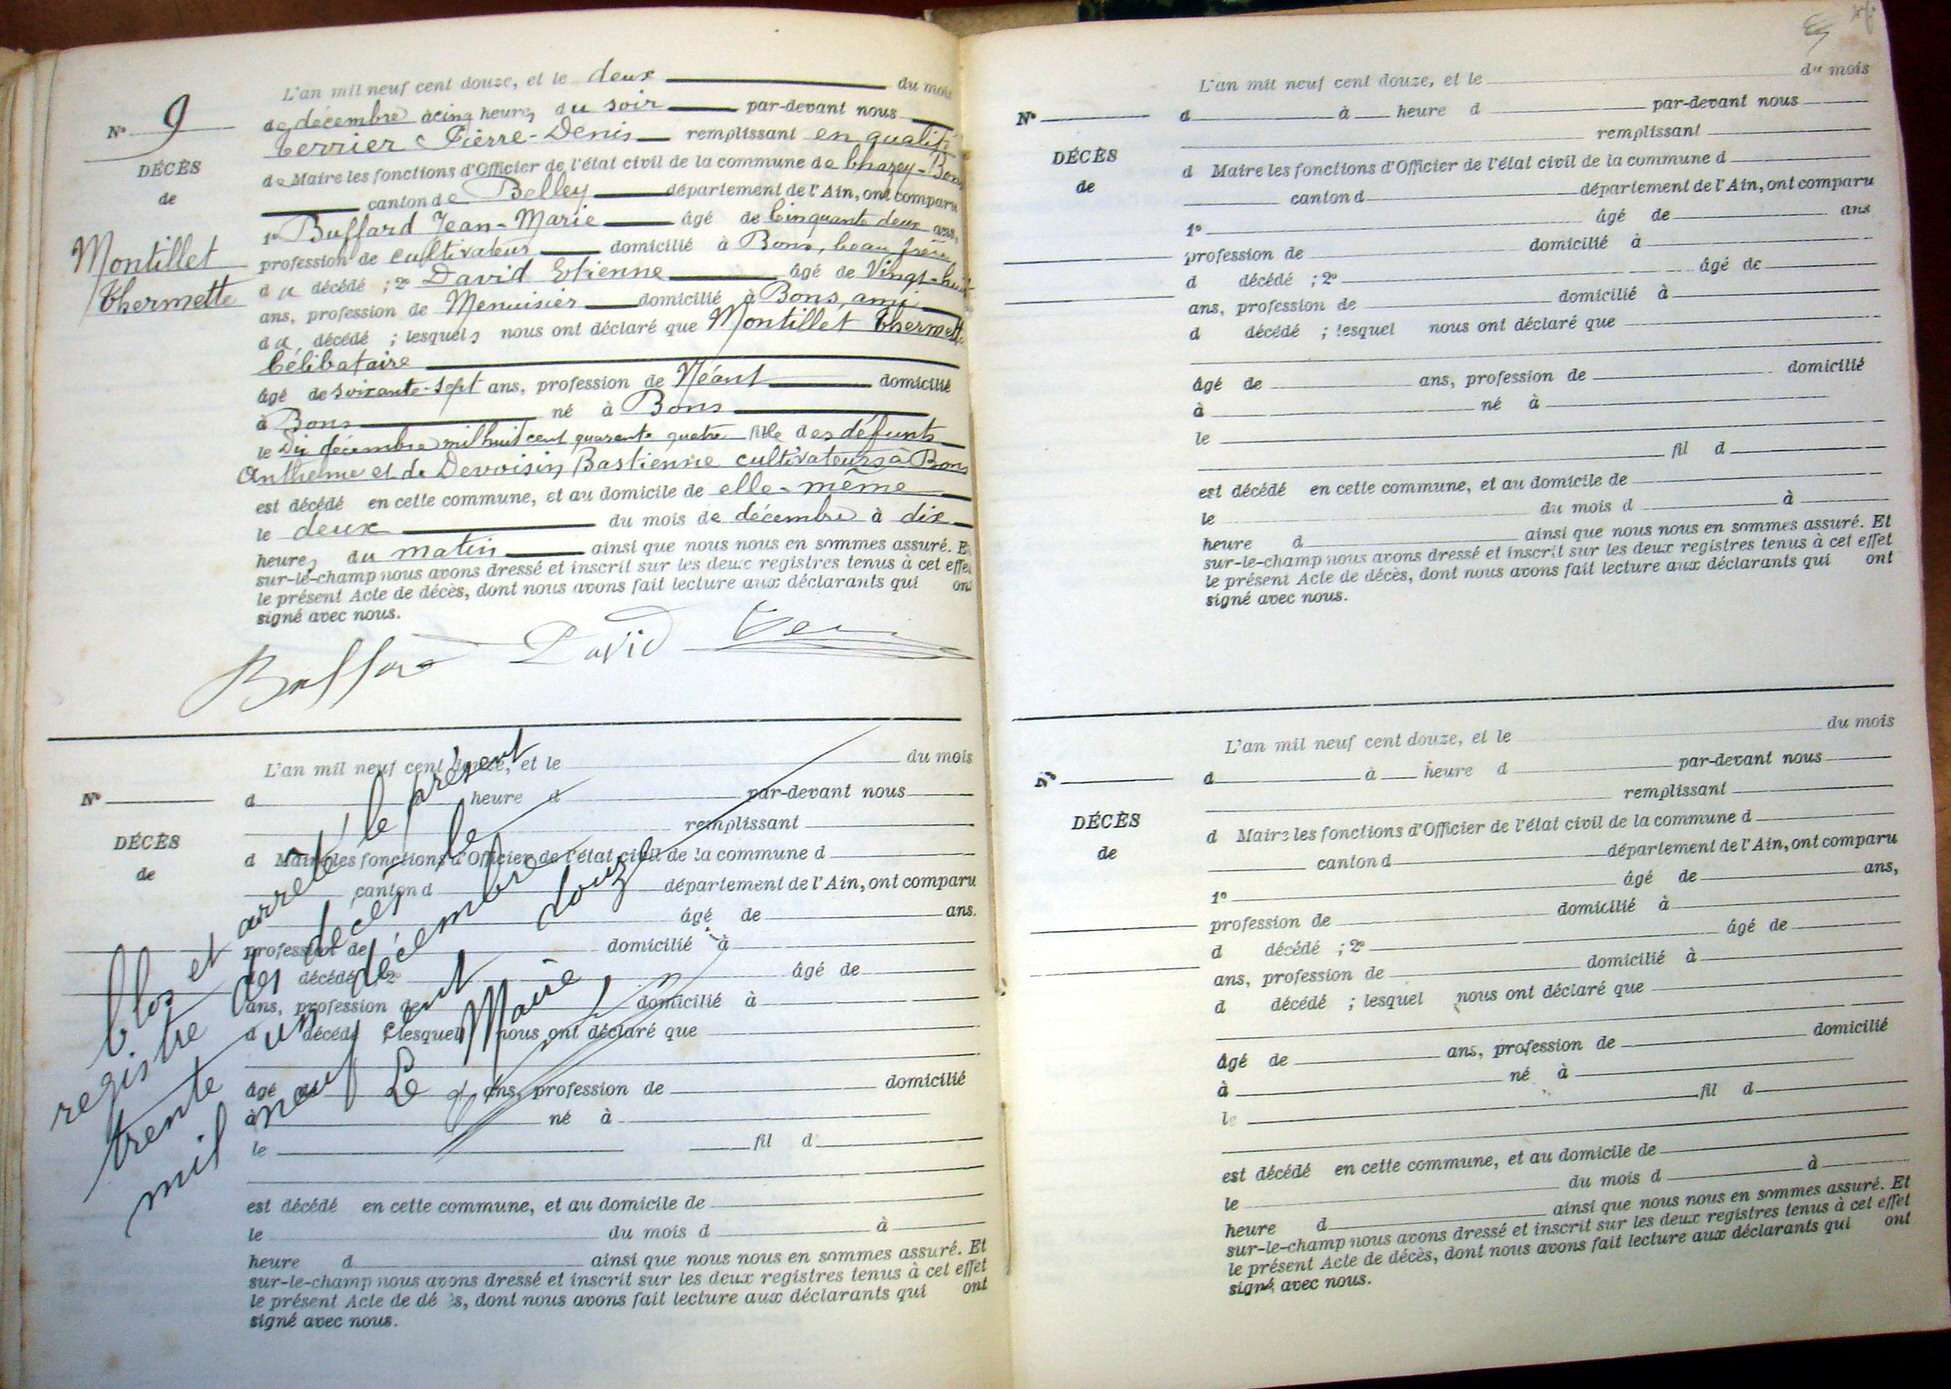 L'an mil neuf cent douze, et le deux du mois
de décembre à cinq heures du soir par-devant nous
N° 9
Terrier Pierre-Denis remplissant en qualité
DÉCÈS
de Maire les fonctions d'Officier de l'état civil de la commune de Chazey-Bons
de
canton de Belley département de l'Ain, ont comparu
1° Buffard Jean-Marie âgé de Cinquante deux ans,
Montillet
profession de cultivateur domicilié à Bons, beau frère
Thermette
d la décédé ; 2° David Etienne âgé de Vingt-huit
ans, profession de Menuisier domicilié à Bons, ami
d la décédé ; lesquels nous ont déclaré que Montillet Thermette
Célibataire
âgé de soixante-sept ans, profession de Néant domicilié
à Bons né à Bons
le Dix décembre mil huit cent quarante quatre fille des défunts
Antheme et de Devoisin Bastienne cultivateurs à Bons
est décédé en cette commune, et au domicile de elle-même
le deux du mois de décembre à dix
heures du matin ainsi que nous nous en sommes assuré. Et
sur-le-champ nous avons dressé et inscrit sur les deux registres tenus à cet effet
le présent Acte de décès, dont nous avons fait lecture aux déclarants qui ont
signé avec nous.
Buffard David
L'an mil neuf cent douze, et le du mois
N° d heure d par-devant nous
remplissant
DÉCÈS
d Maire les fonctions d'Officier de l'état civil de la commune d
de
canton d département de l'Ain, ont comparu
âgé de ans.
profession de domicilié à
décédé 2° âgé de
ans, profession de domicilié à
d décédé lesquel nous ont déclaré que
âgé de ans, profession de domicilié
à né à
le fil d
est décédé en cette commune, et au domicile de
le du mois d à
heure d ainsi que nous nous en sommes assuré. Et
sur-le-champ nous avons dressé et inscrit sur les deux registres tenus à cet effet
le présent Acte de décès, dont nous avons fait lecture aux déclarants qui ont
signé avec nous.
Clos et arrêté le présent
registre des décès le
trente un décembre
mil neuf cent douze
Le Maire
L'an mil neuf cent douze, et le du mois
N° d à heure d par-devant nous
remplissant
DÉCÈS
d Maire les fonctions d'Officier de l'état civil de la commune d
de
canton d département de l'Ain, ont comparu
1° âgé de ans
profession de domicilié à
d décédé ; 2° âgé de
ans, profession de domicilié à
d décédé ; lesquel nous ont déclaré que
âgé de ans, profession de domicilié
à né à
le
fil d
est décédé en cette commune, et au domicile de
le du mois d à
heure d ainsi que nous nous en sommes assuré. Et
sur-le-champ nous avons dressé et inscrit sur les deux registres tenus à cet effet
le présent Acte de décès, dont nous avons fait lecture aux déclarants qui ont
signé avec nous.
L'an mil neuf cent douze, et le du mois
N° d à heure d par-devant nous
remplissant
DÉCÈS
d Maire les fonctions d'Officier de l'état civil de la commune d
de
canton d département de l'Ain, ont comparu
1° âgé de ans,
profession de domicilié à
d décédé ; 2° âgé de
ans, profession de domicilié à
d décédé ; lesquel nous ont déclaré que
âgé de ans, profession de domicilié
à né à
le fil d
est décédé en cette commune, et au domicile de
le du mois d à
heure d ainsi que nous nous en sommes assuré. Et
sur-le-champ nous avons dressé et inscrit sur les deux registres tenus à cet effet
le présent Acte de décès, dont nous avons fait lecture aux déclarants qui ont
signé avec nous.